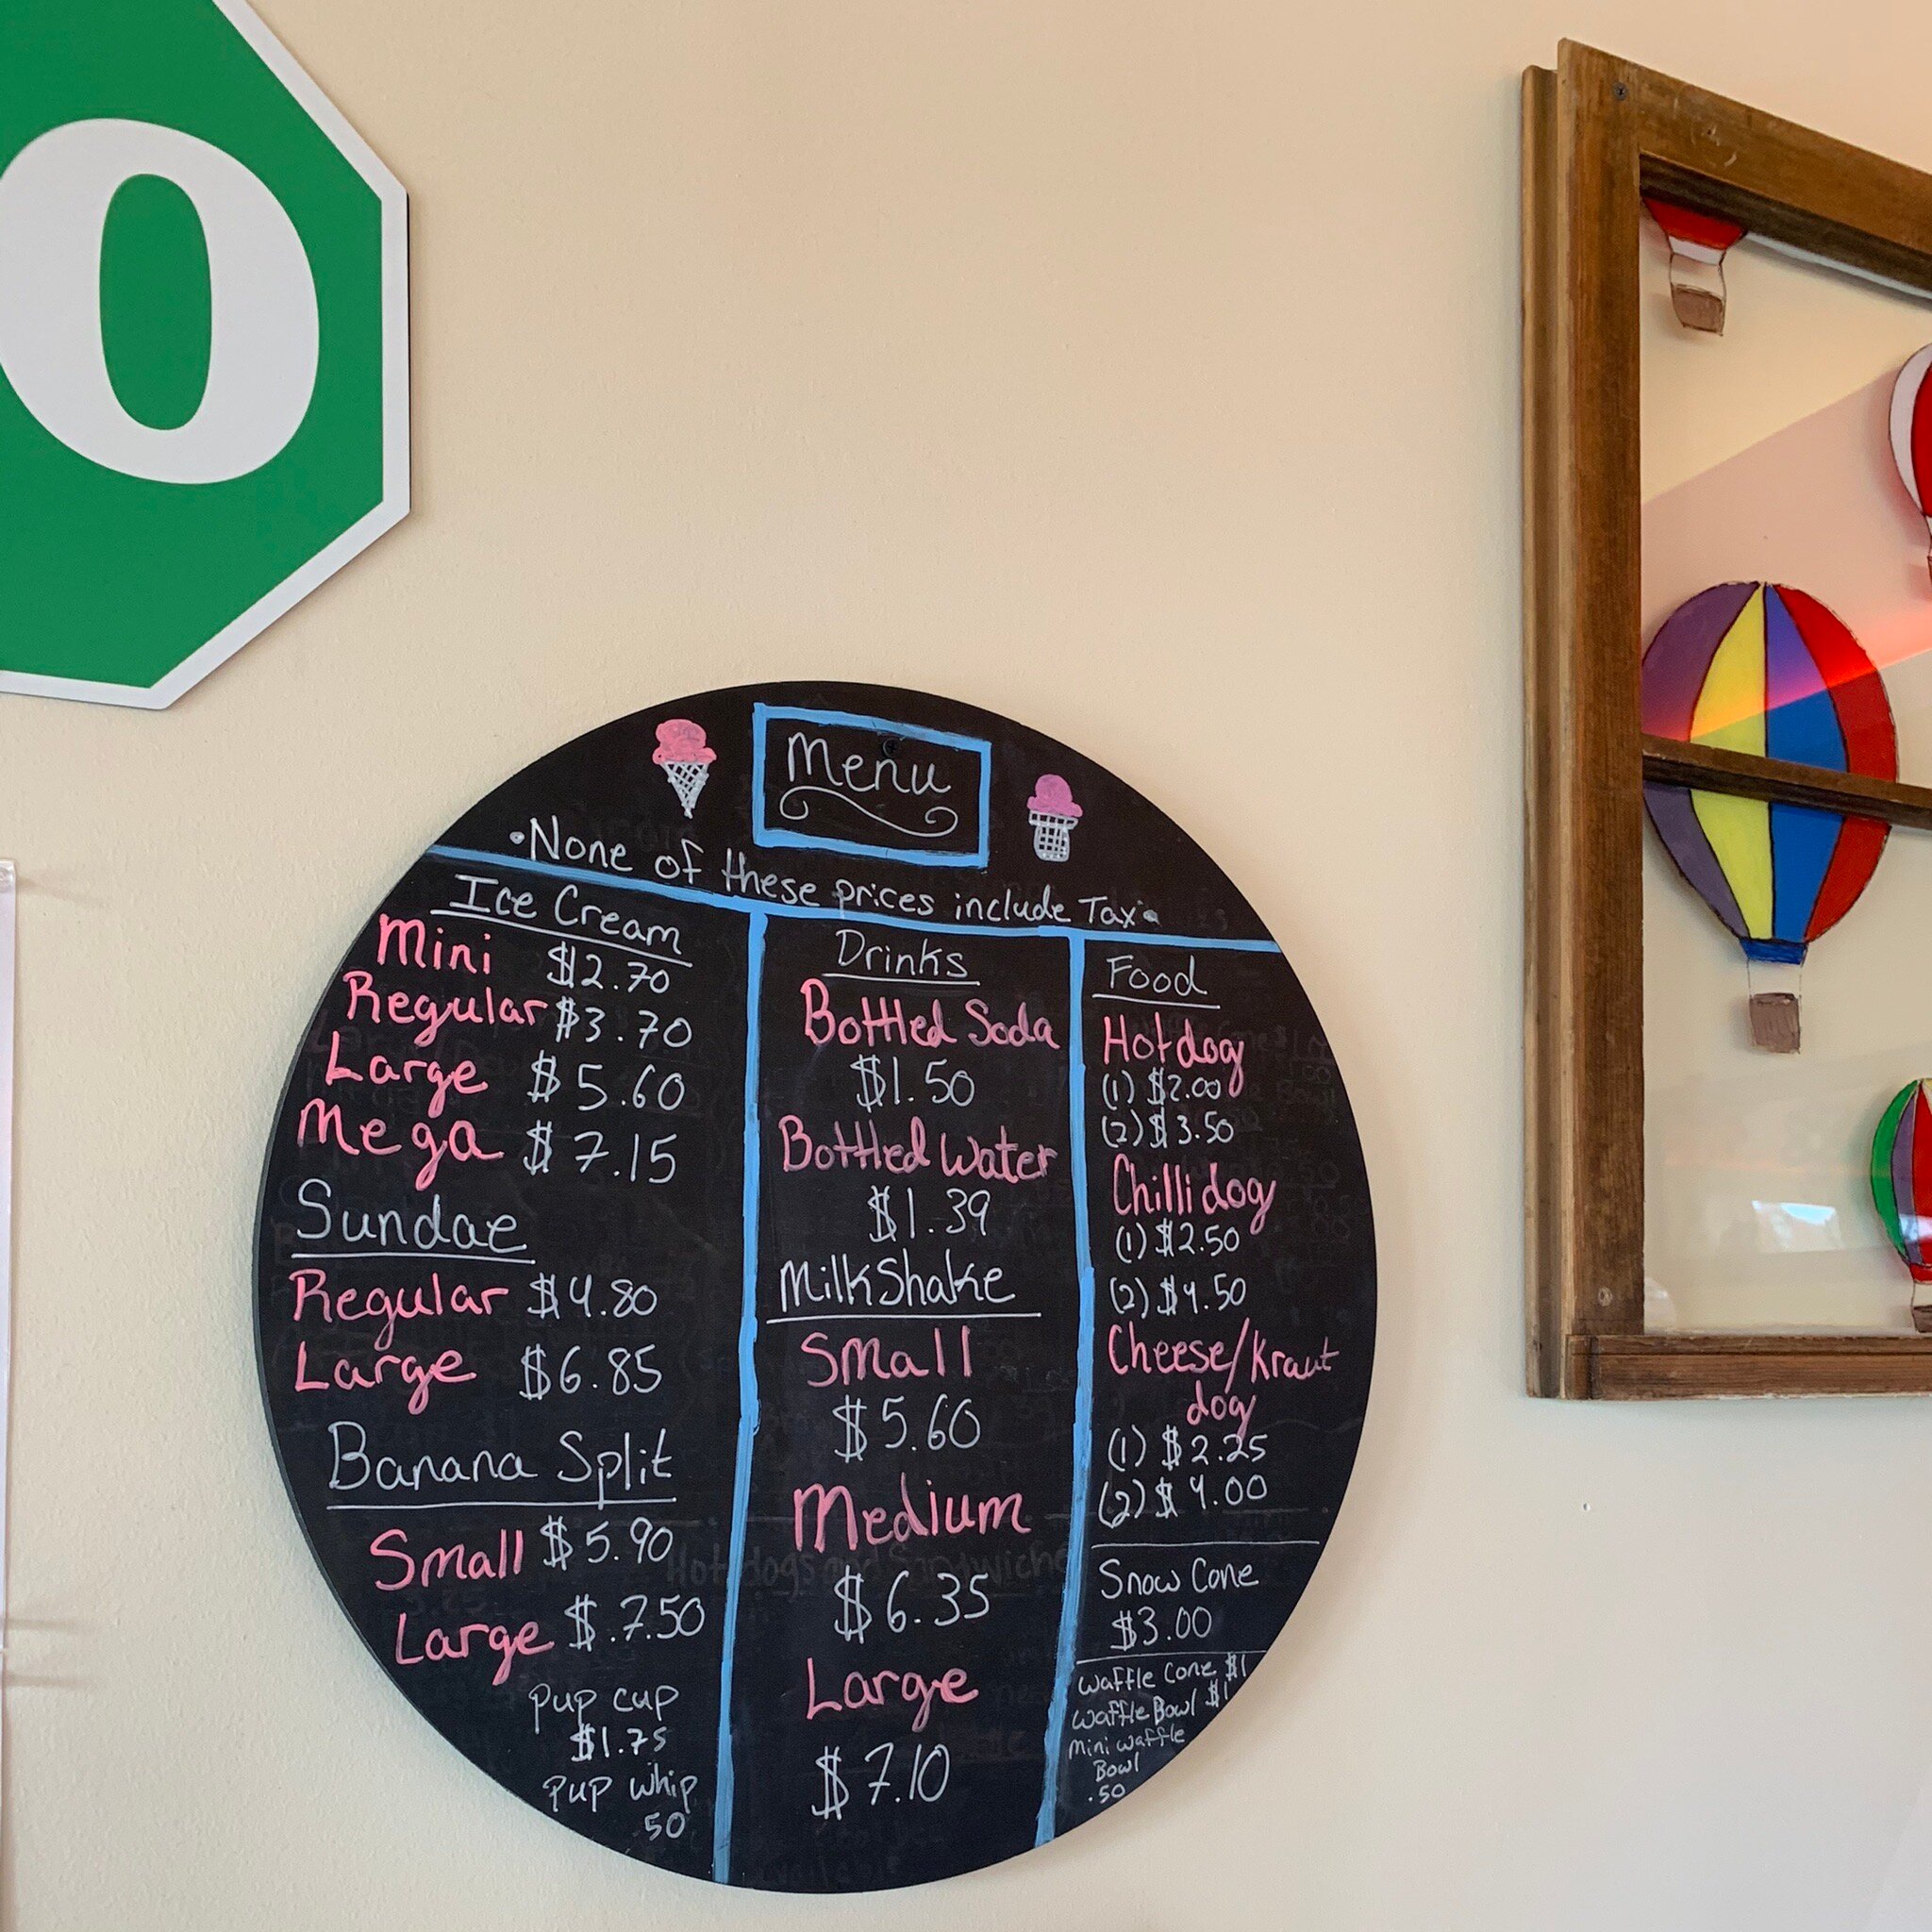 O
Menu
•None of these prices include Tax•
Ice Cream
Mini $2.70
Regular $3.70
Large $5.60
Mega $7.15
Sundae
Regular $4.80
Large $6.85
Banana Split
Small $5.90
Large $.7.50
pup cup
$1.75
pup whip
50
Drinks
Bottled Soda
$1.50
Bottled Water
$1.39
MilkShake
Small
$5.60
Medium
$6.35
Large
$7.10
Food
Hotdog
(1) $2.00
(2) $3.50
Chilli dog
(1) $2.50
(2) $4.50
Cheese/Kraut
dog
(1) $2.25
(2) $4.00
Snow Cone
$3.00
Waffle Cone $1
Waffle Bowl $1
mini waffle
Bowl
.50
Hot dogs and Sandwiche